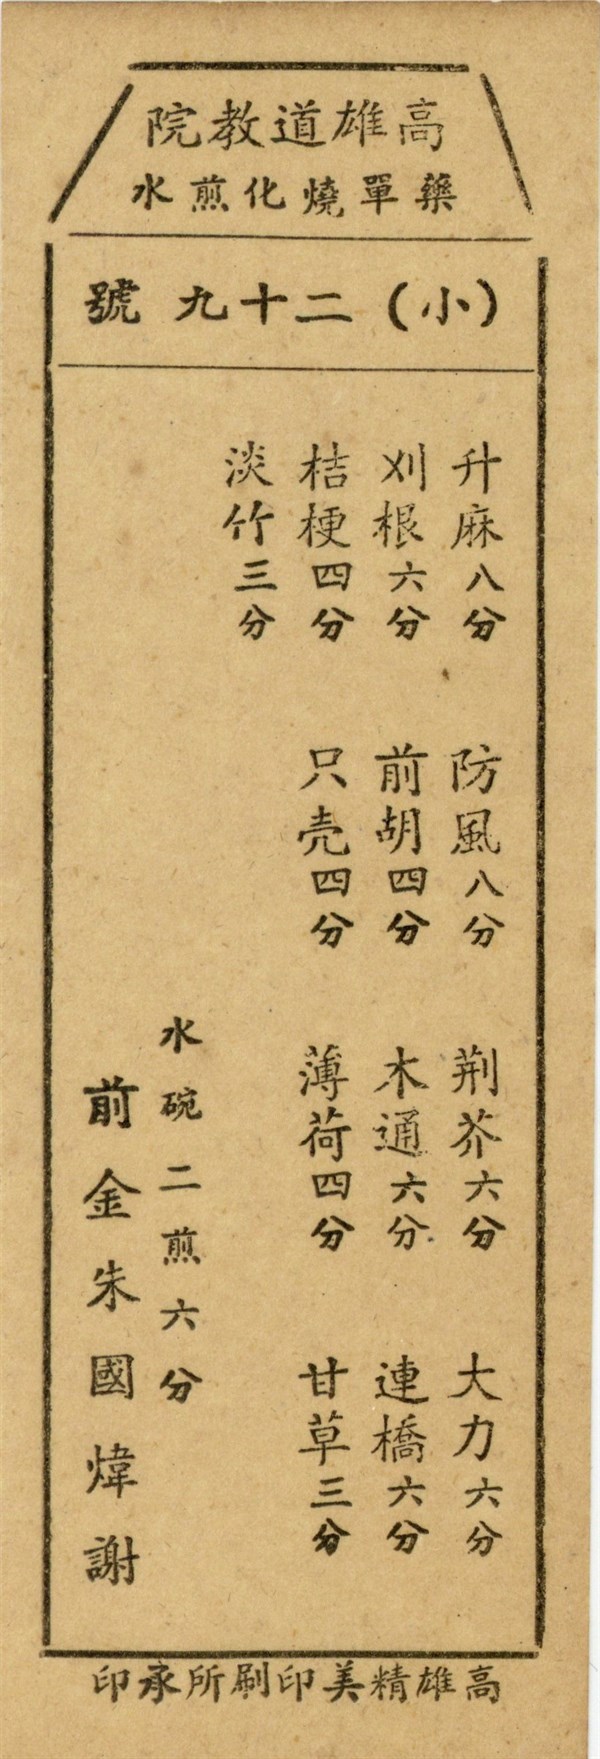 高雄道教院
藥單燒化煎水
(小)二十九號
升麻八分 防風八分 荆芥六分 大力六分
刈根六分 前胡四分 木通六分 連橋六分
桔梗四分 只壳四分 薄荷四分 甘草三分
淡竹三分
水碗二煎六分
前金朱國煒謝
高雄精美印刷所承印